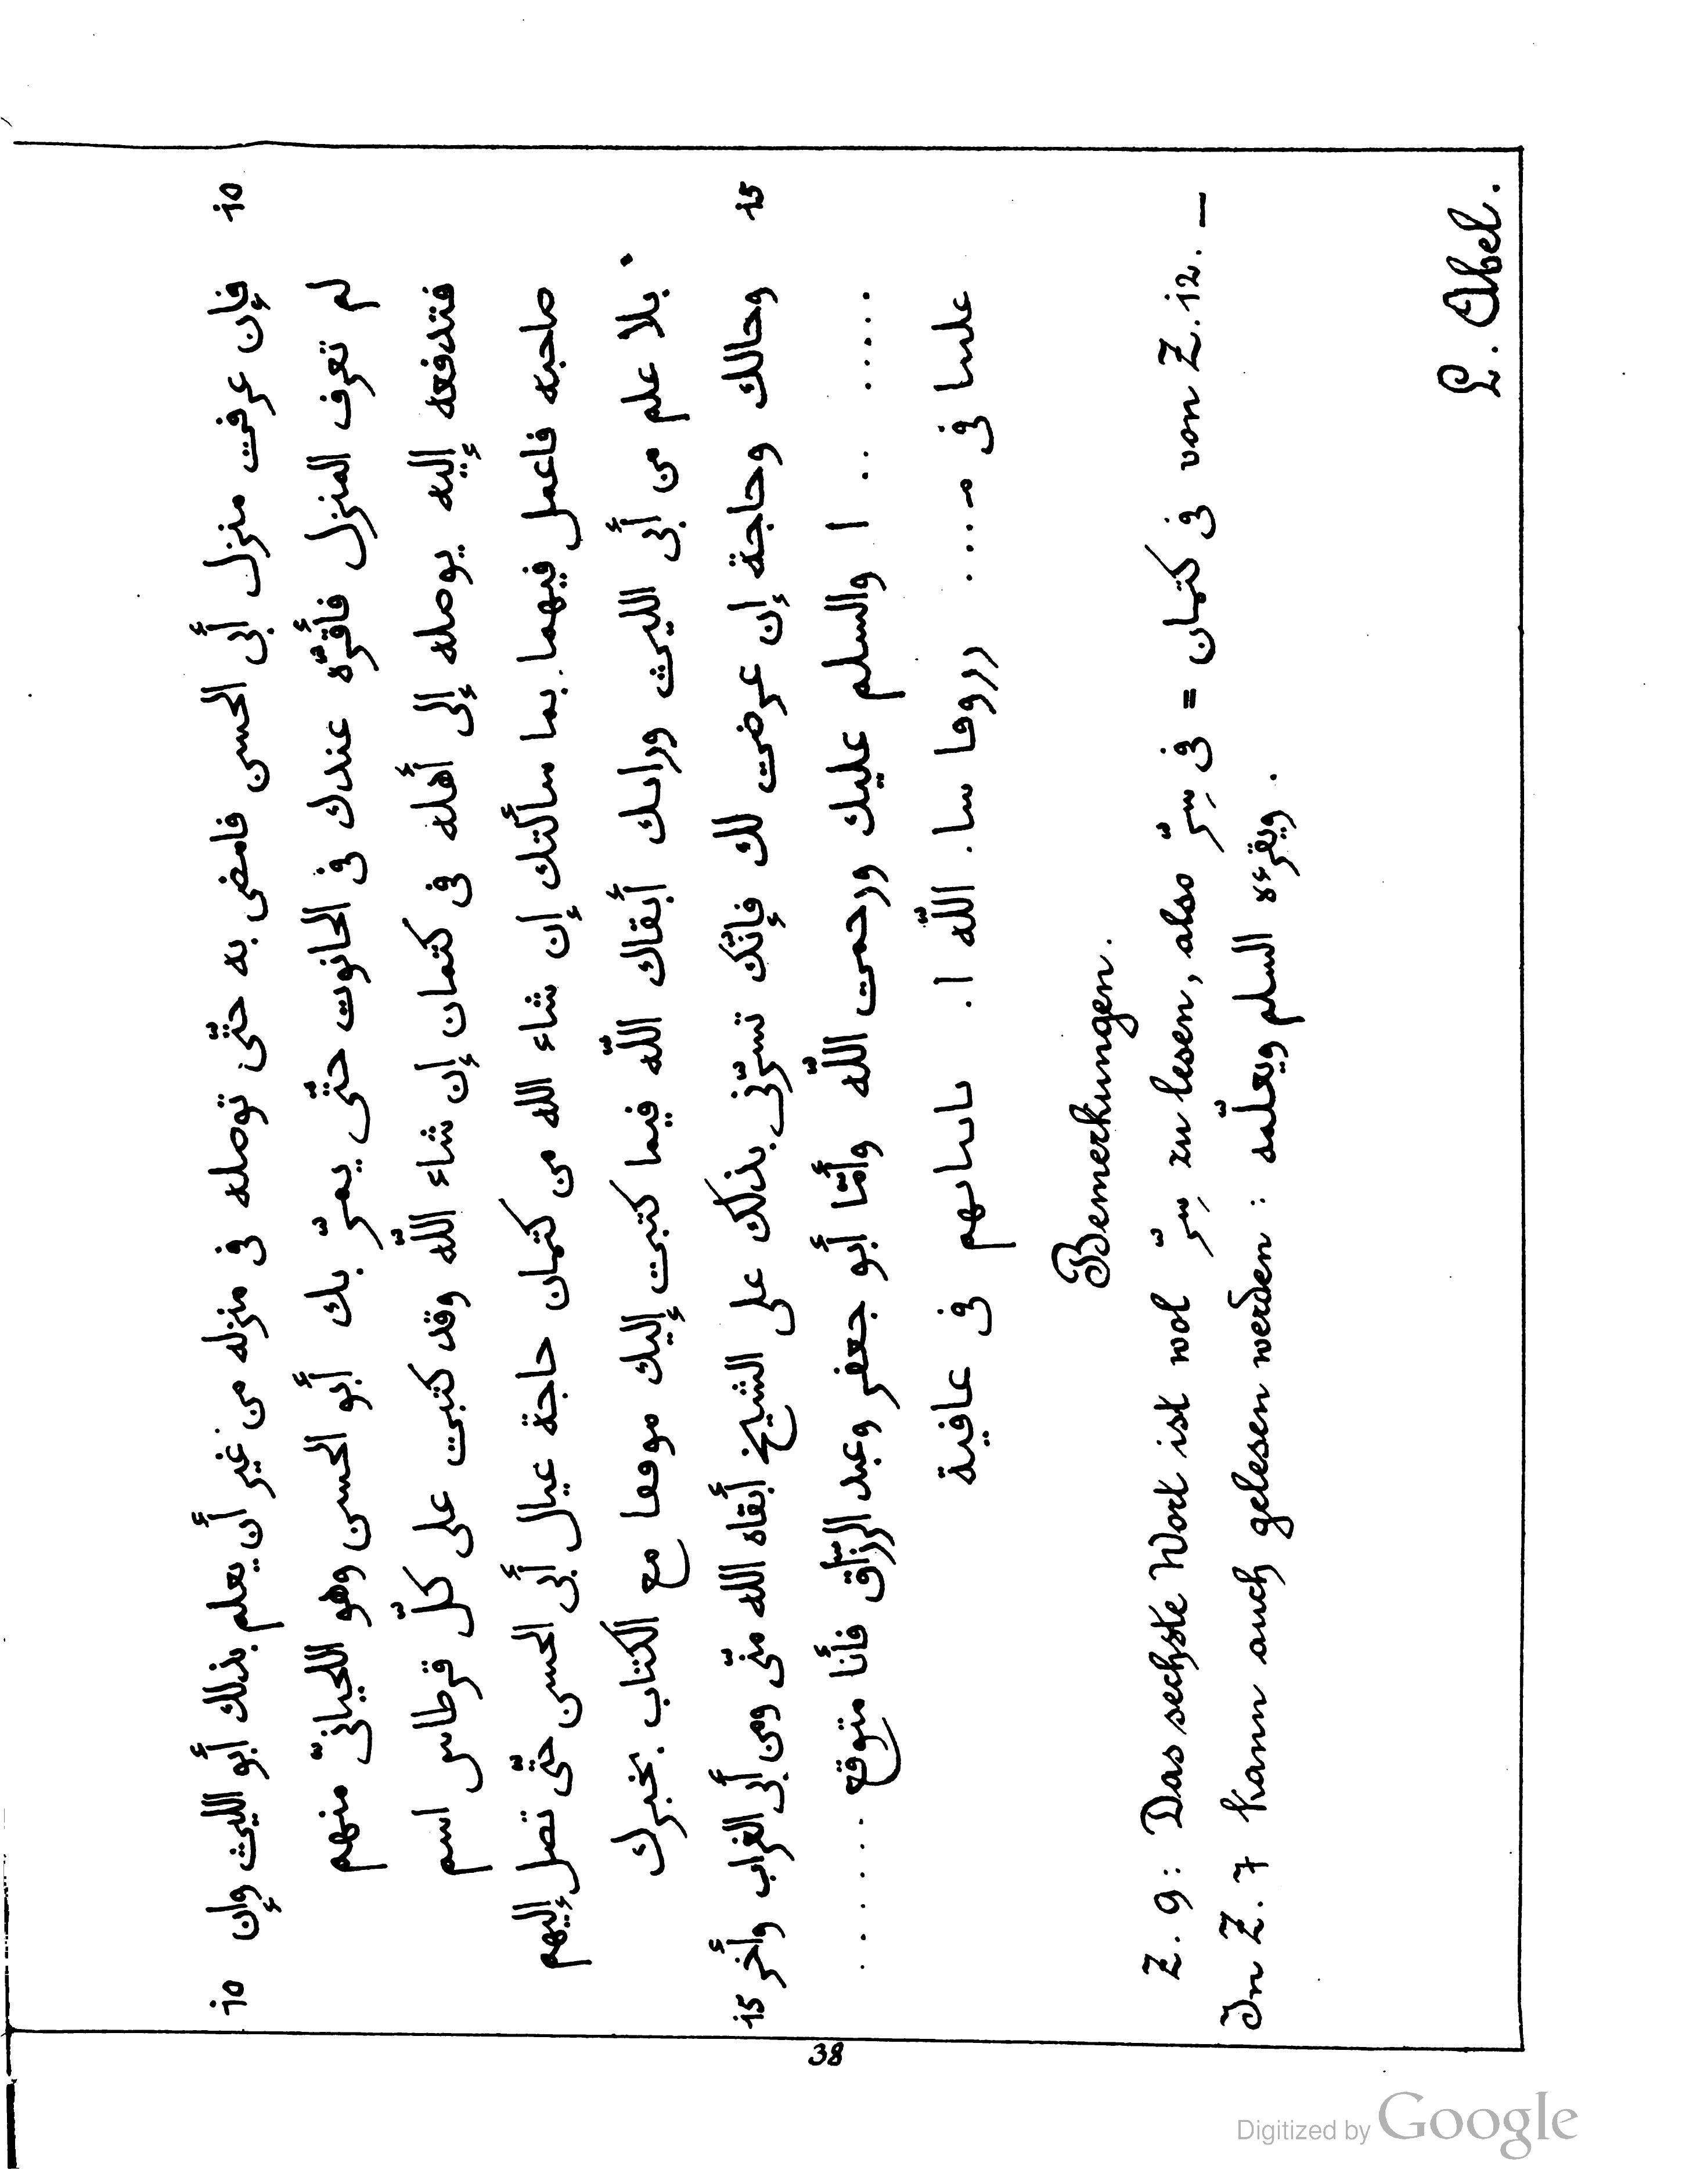 10 فإن عرفت منزل أبى الحسن فامضى به حتّى توصله فى منزله من غير أن يعلم بذلك أبو الليث وإن 10
لم تعرف المنزل فأقرّه عندك فى الحانوت حتّى يمرّ بك أبو الحسن وهو اللحيانىّ منهم
فتدفعه إليه يوصله إلى أهله فى كتمان إن شاء اللّه وقد كتبت على كلّ قرطاس اسم
صاحبه فاعمل فيهما بما سألتك إن شاء الله من كتمان حاجة عيال أبى الحسن حتّى تصل إليهم
بلا علم من أبى الليث ورابك أبقاك اللّه فيما كتبت إليك موفعا مع الكتاب بخبرك
15 وحالك وحاجة إن عرضت لك فإنّك تسرّنى بذلك على الشيخ أبقاه الله منّى ومن أبى الغراب وأخر 15
..... .. ا والسلم عليك ورحمت اللّه وأمّا أبو جعفر وعبد الرزّاق فأنا متوقع .....
علىىا فى مـ... اللّه ا. فى عافية
Bemerkungen.
Z. 9: Das sechste Wort ist wol سِرّ zu lesen, also فى سِرّ = فى كتمان von Z. 12. —
In Z. 7 kann auch gelesen werden: ويقرءه السلم ويعلّمه.
L. Abel.
38
Digitized by Google